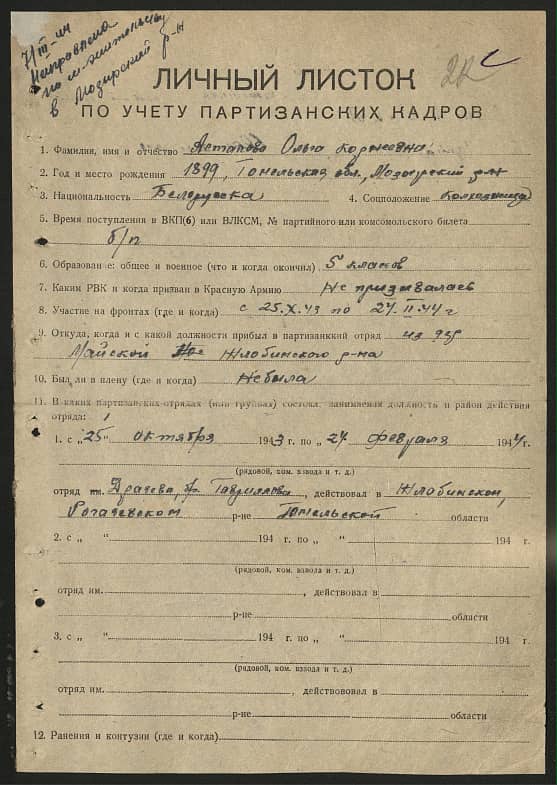 7/III-44
Направлена
по м-жительству
в Мозирский р-н
ЛИЧНЫЙ ЛИСТОК
ПО УЧЕТУ ПАРТИЗАНСКИХ КАДРОВ
1. Фамилия, имя и отчество Астапова Ольга
2. Год и место рождения 1899, Гомельская обл., Мозырский р-н
3. Национальность Белоруска 4. Соцположение Колхозница
5. Время поступления в ВКП(б) или ВЛКСМ, № партийного или комсомольского билета
б/п
6. Образование: общее и военное (что и когда окончил) 5 класов
7. Каким РВК и когда призван в Красную Армию Не призывалась
8. Участие на фронтах (где и когда) с 25.X.43 по 24.II.44 г
9. Откуда, когда и с какой должности прибыл в партизанкий отряд из дер
Майской Жлобинского р-на
10. Был ли в плену (где и когда) Небыла
11. В каких партизанских отрядах (или группах) состоял, занимаемая должность и район действия
отряда:
1. с „25" октября 1943 г. по „24 февраля 1944 г.
(рядовой, ком. взвода и т. д.)
отряд им. Драчева, бр. Гаврилова, действовал в Жлобинском,
Рогачевском р-не Гомельской области
2. с „ " 194 г. по „ " 194 г.
(рядовой, ком. взвода и т. д.)
отряд им. , действовал в
р-не области
3. с „ " 194 г. по „ " 194 г.
(рядовой, ком. взвода и т. д.)
отряд им. , действововал в
р-не области
12. Ранения и контузии (где и когда)